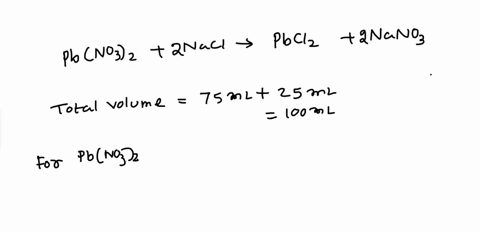 Pb(NO3)2 + 2NaCl → PbCl2 + 2NaNO3
Total volume = 75mL + 25mL
= 100mL
For Pb(NO3)2